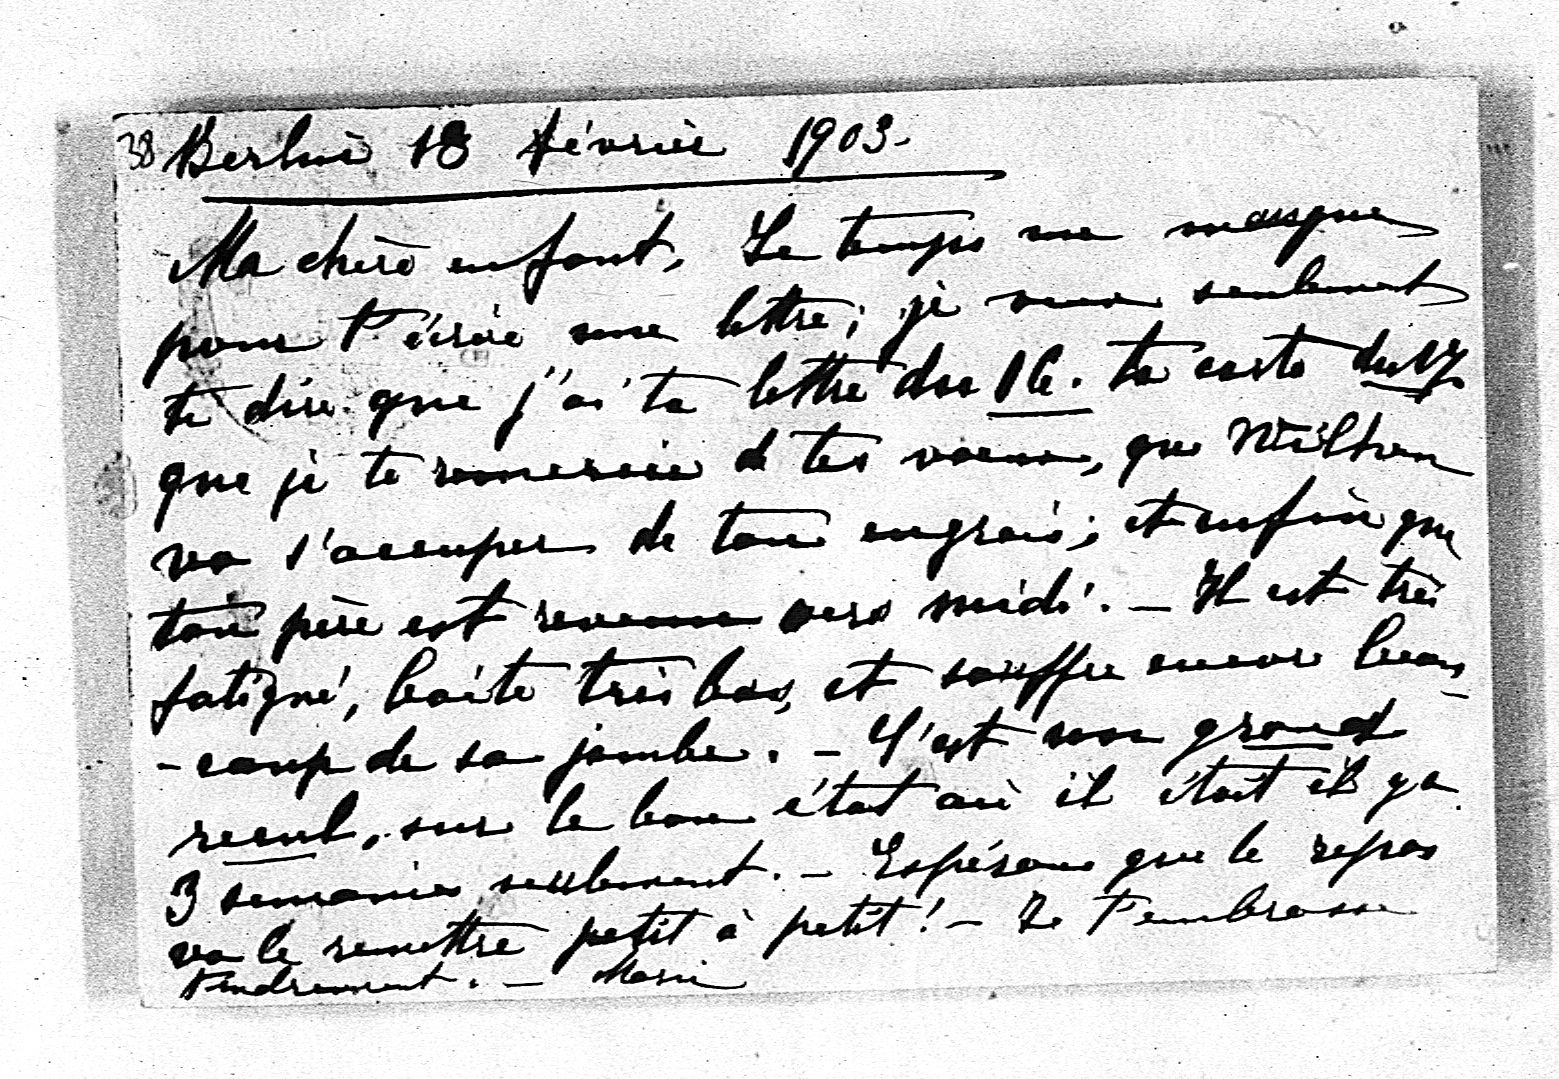 38 Berlin 18 février 1903.
Ma chère enfant, Le temps me manque
pour t'écrire une lettre; je veux seulement
te dire que j'ai ta lettre du 16. ta carte du 17
que je te remercie d tes vœux, que
va s'occuper de ton engrais; et enfin que
ton père est revenu vers midi. — Il est très
fatigué, boite très bas, et souffre encore beau-
-coup de sa jambe. — C'est un grand
recul, sur le bon état où il était il y a
3 semaines seulement. — Espérons que le repos
va le remettre petit à petit! — Je t'embrasse
tendrement. — Marie